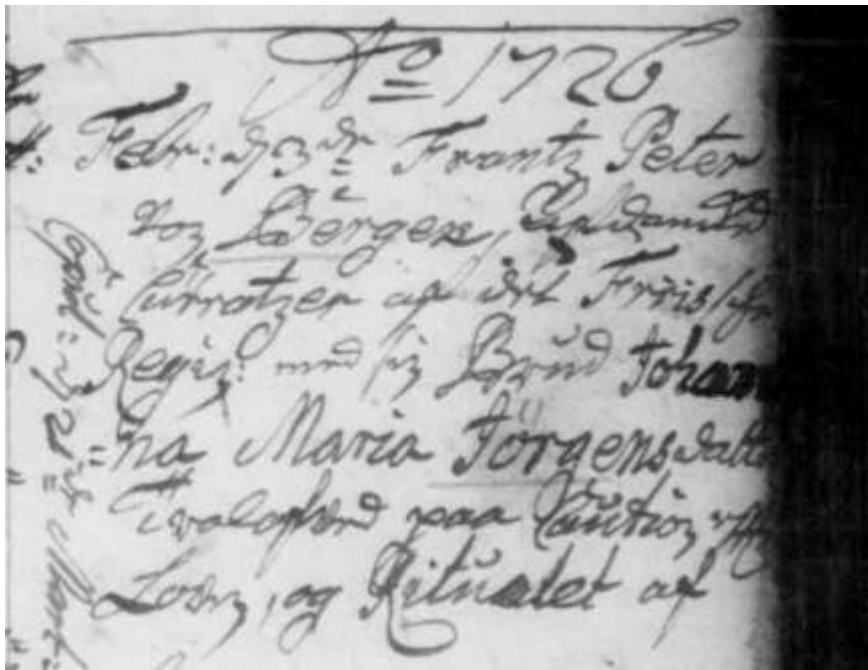 Ao 1726
Febr: d 3de Frantz Peter
von Bergen,
Curratzer af det Friis
Regim: med sin Brud Johan
=na Maria Jörgensdatt
Trolofved paa Caution
Loven, og Ritualet af